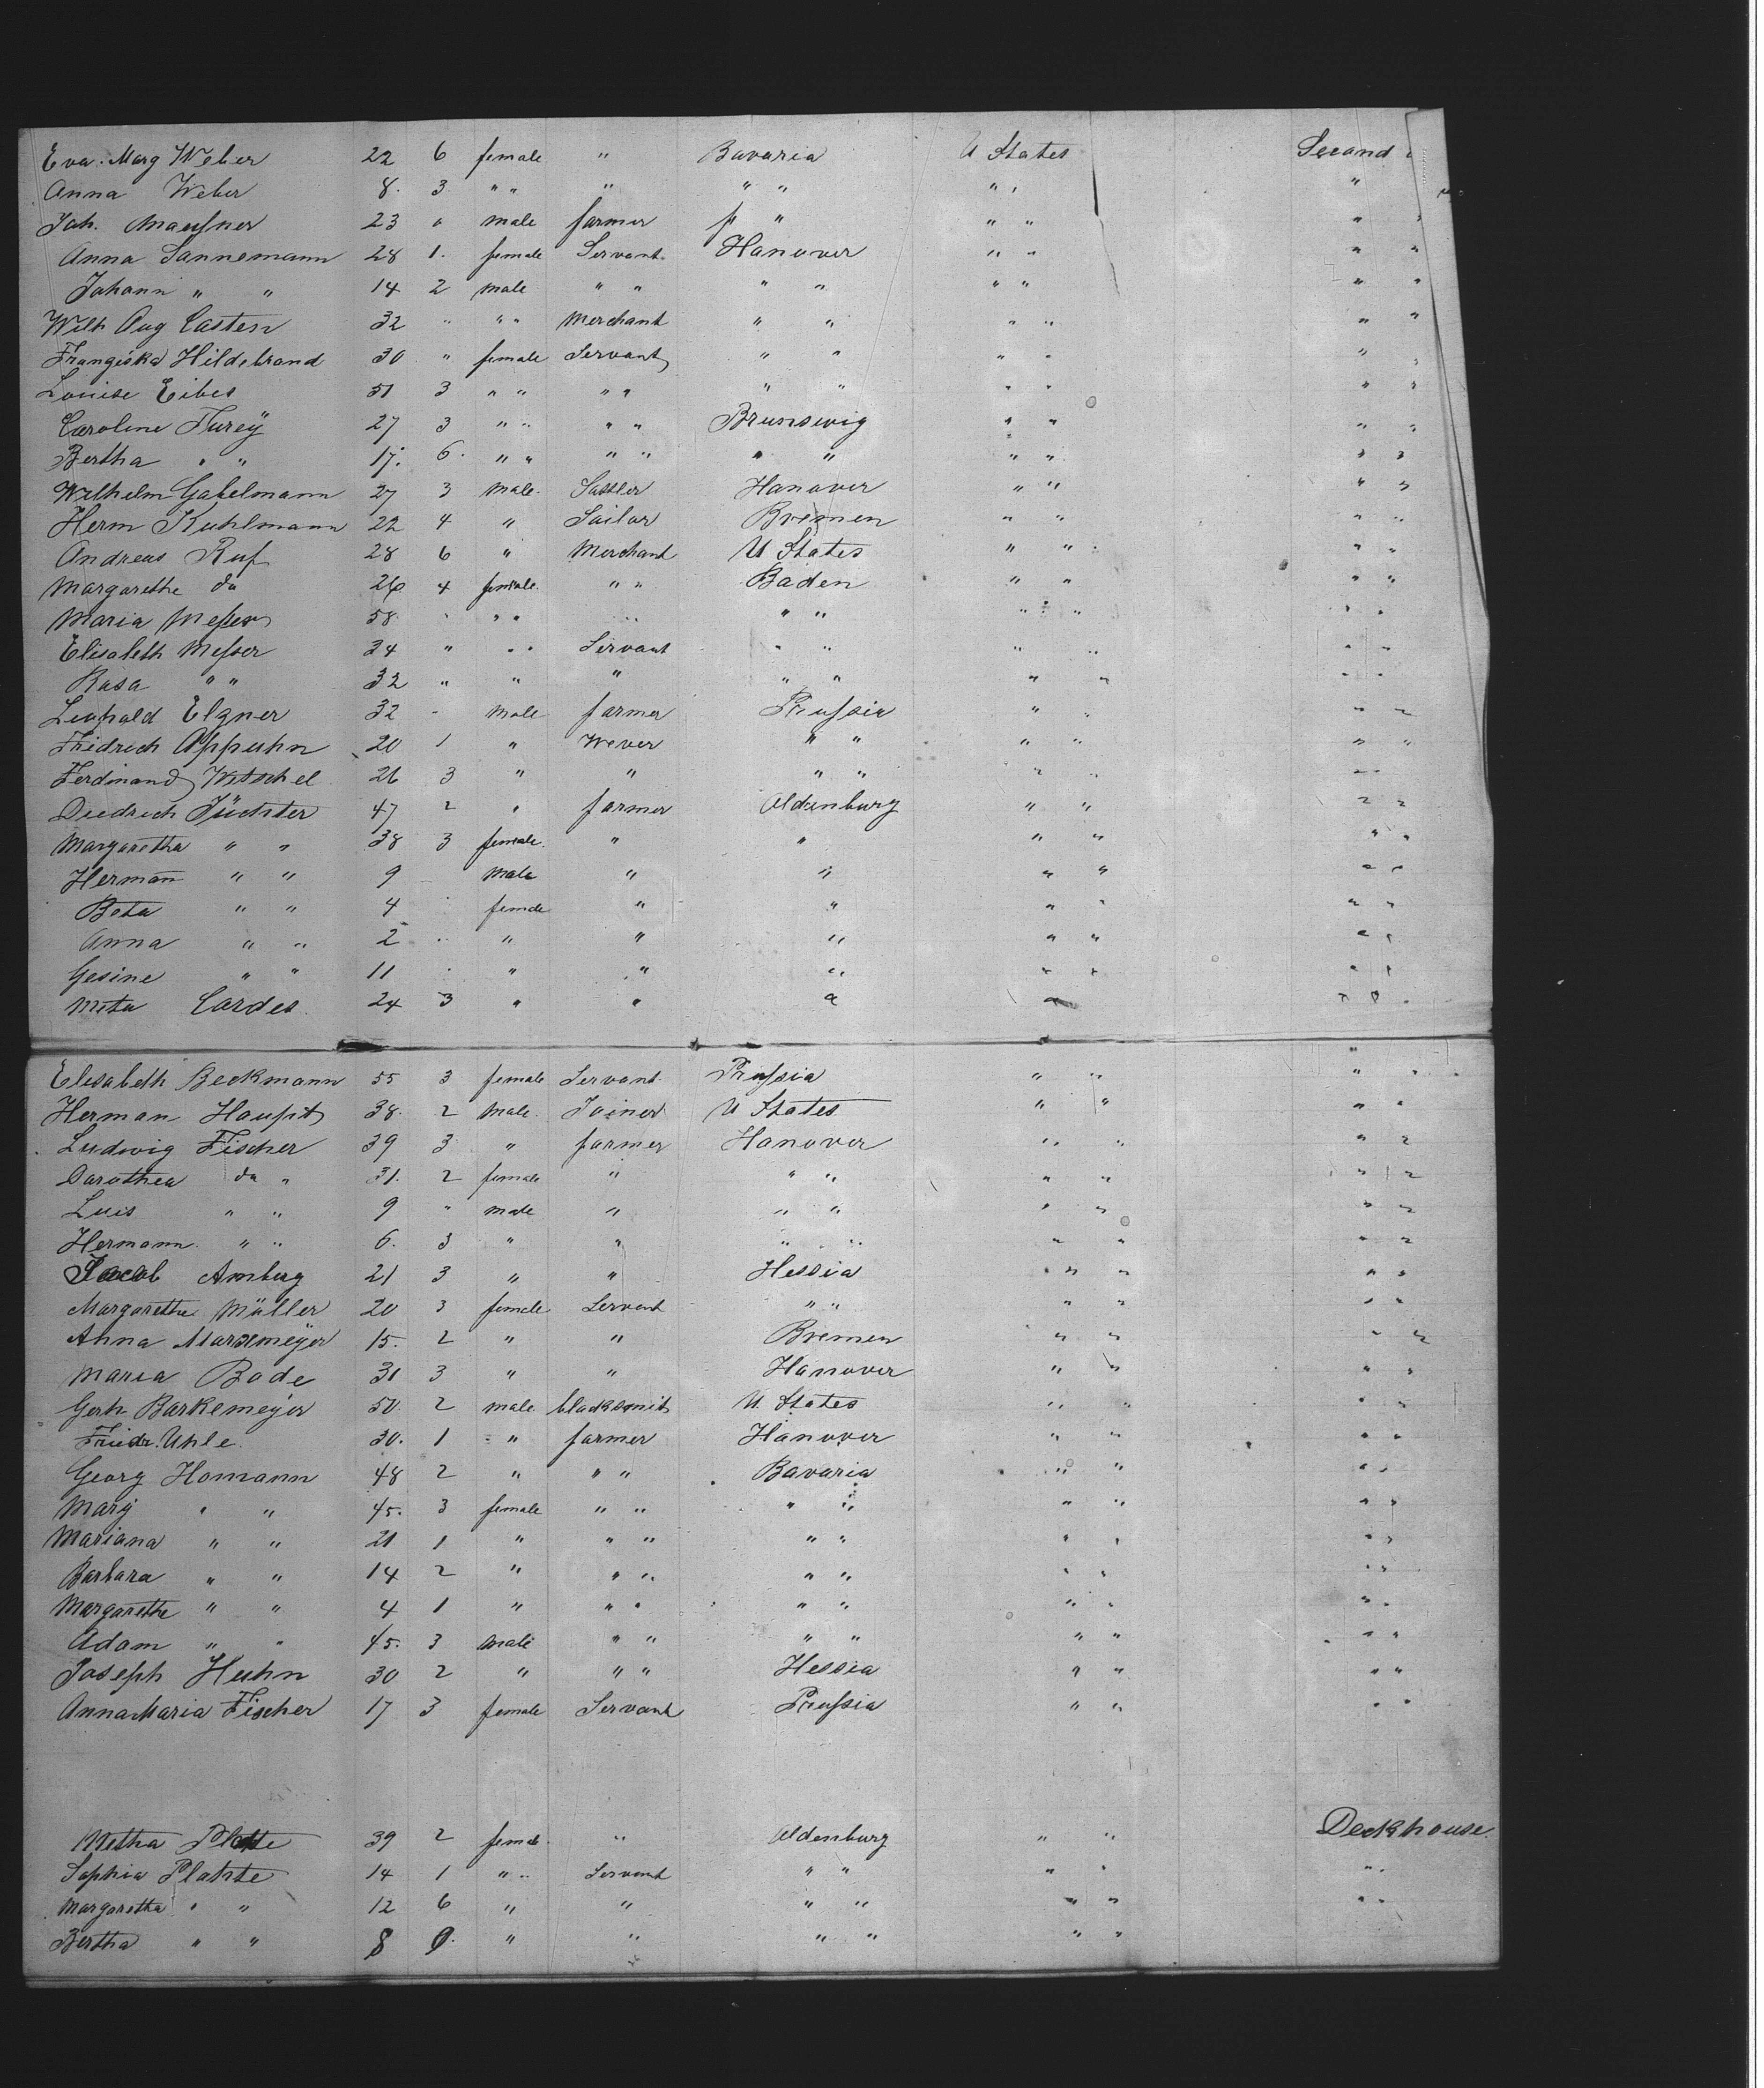 Eva. Marg Weber 22 6 female " Bavaria U States Second
Anna Weber 8. 3 " " " " " " " "
Joh. Maußner 23 " male farmer " " " " "
Anna Sannemann 28 1. female Servant Hanover " " " "
Johann " " 14 2 male " " " " " " " "
Wilh Aug Casten 32 " " " Merchant " " " " " "
Franziska Hildebrand 30 " female Servant " " " " " "
Louise Eibes 51 3 " " " " " " " " " "
Caroline Furey 27 3 " " " " Brunswig " " " "
Bertha " " 17. 6. " " " " " " " " " "
Wilhelm Gabelmann 27 3 male. Sattler Hanover " " " "
Herm Kuhlmann 22 4 " Sailor Bremen " " " "
Andreas Ruf 28 6 " Merchant U States " " " "
Margarethe do 26 4 female. " " Baden " " " "
Maria Meßer 58. " " " " " " " " " "
Elisabeth Meßer 24 " " " Servant " " " " " "
Rosa " " 32 " " " " " " " " "
Leopold Elgner 32 " Male farmer Preußia " " " "
Fridrich Appuhn 20 1 " Wever " " " " " "
Ferdinand Witschel 26 3 " " " " " " " "
Diedrich Jüchter 47 2 " farmer Oldenburg " " " "
Margaretha " " 38 3 female. " " " " " "
Hermann " " 9 male " " " " " "
Beta " " 4 " female " " " " " "
Anna " " 2 " " " " " " " "
Gesine " " 11 " " " " " " " "
Meta Cardes 24 3 " " " " " "
Elisabeth Beckmann 55 3 female Servant. Preußia " " " "
Herman Haupt 38. 2 Male. Joiner U States " " " "
Ludwig Fischer 39 3 " farmer Hanover " " " "
Dorothea do " 31. 2 female " " " " " " "
Luis " " 9 " male " " " " " " "
Hermann. " " 6. 3 " " " " " " " "
Jacob Amberg 21 3 " " Hessia " " " "
Margarethe Müller 20 3 female Servant " " " " " "
Anna Marxmeyer 15. 2 " " Bremen " " " "
Maria Bode 31 3 " " Hanover " " " "
Gerh Barkemeyer 50. 2 male blacksmit U. States " " " "
Friedr. Uhle. 30. 1 " farmer Hanover " " " "
Georg Homann 48 2 " " " Bavaria " " " "
Mary " " 45. 3 female " " " " " " " "
Mariana " " 21 1 " " " " " " " " "
Barbara " " 14 2 " " " " " " " " "
Margarethe " " 4 1 " " " " " " " " "
Adam " " 45. 3 male " " " " " " " "
Joseph Huhn 30 2 " " " Hessia " " " "
Anna Maria Fischer 17 3 female Servant Preußia " " " "
Metha Plate 39 2 female " Oldenburg " " Deckhouse.
Sophia Plahte 14 1 " " Servant " " " " " "
Margaretha " " 12 6 " " " " " " " "
Bertha " " 8 9. " " " " " "